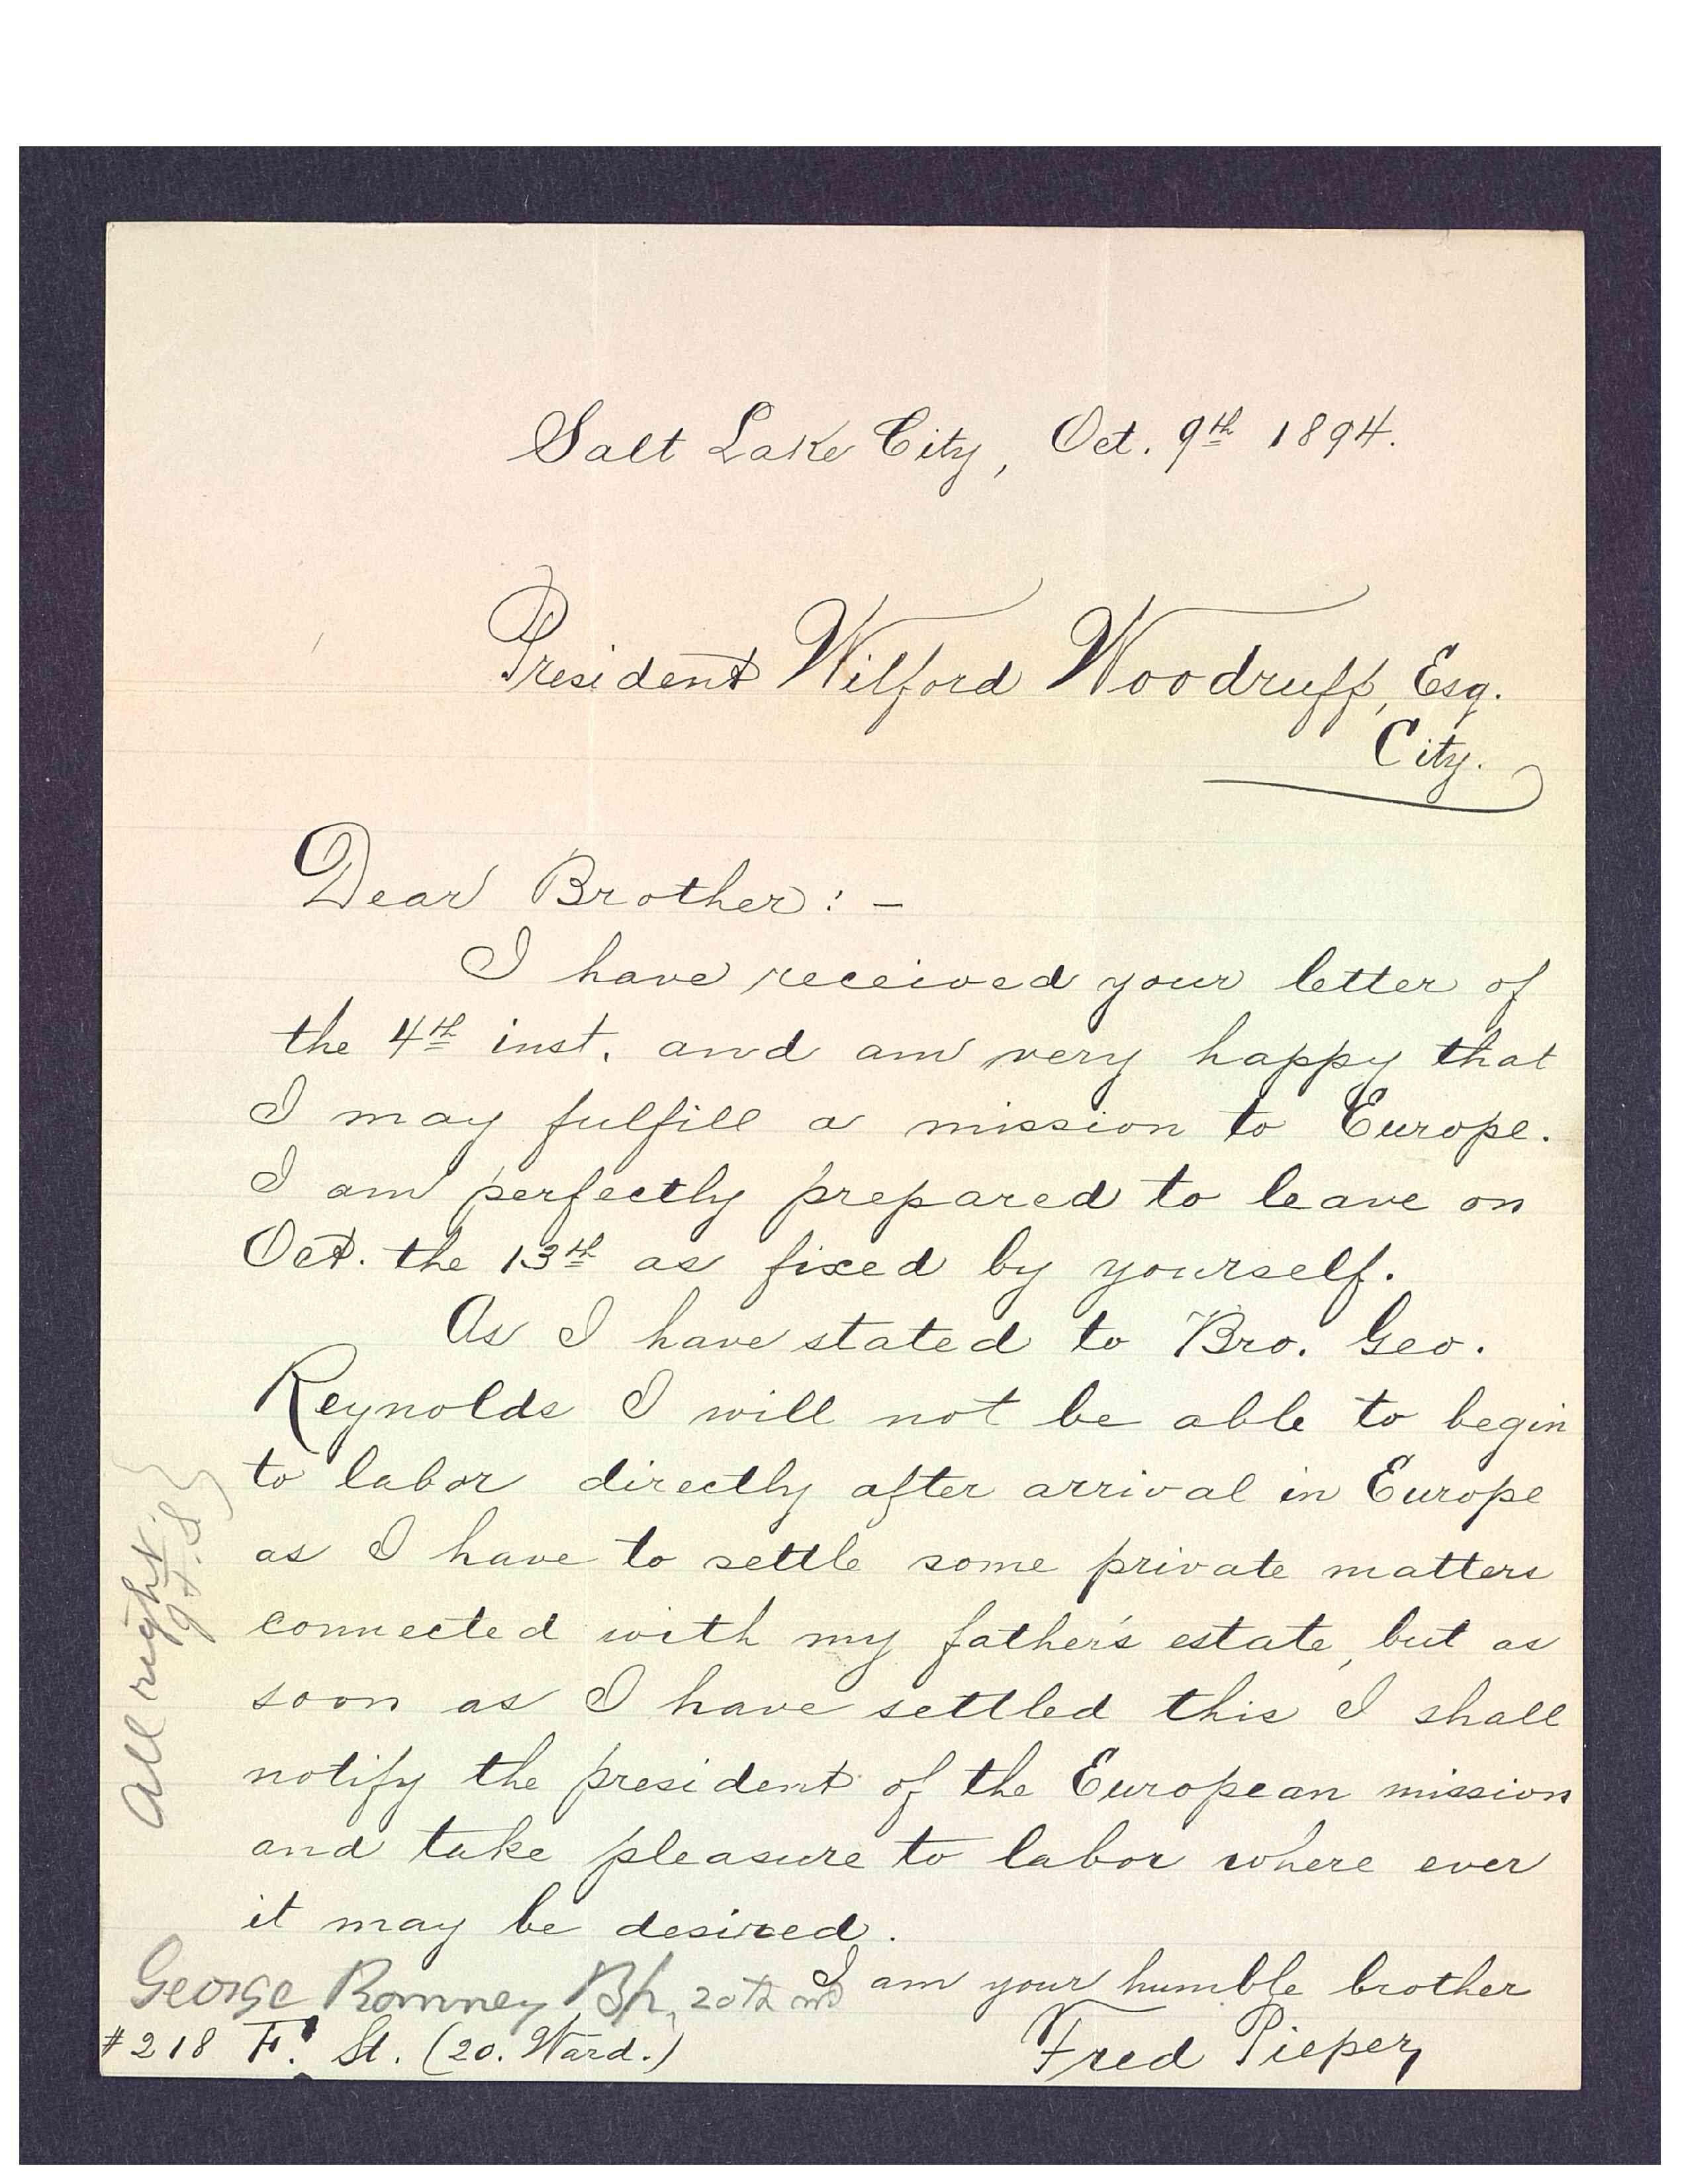 Salt Lake City, Oct. 9th 1894.
President Wilford Woodruff, Esq.
City.
Dear Brother: -
I have received your letter of
the 4th inst. and am very happy that
I may fulfill a mission to Europe.
I am perfectly prepared to leave on
Oct. the 13th as fixed by yourself.
As I have stated to Bro. Geo.
Reynolds I will not be able to begin
to labor directly after arrival in Europe
as I have to settle some private matters
connected with my father's estate, but as
soon as I have settled this I shall
notify the president of the European mission
and take pleasure to labor where ever
it may be desired.
I am your humble brother
Fred Pieper,
George Romney Bp, 20th wd
#218 F. St. (20. Ward.)
All right.
J. F. S.